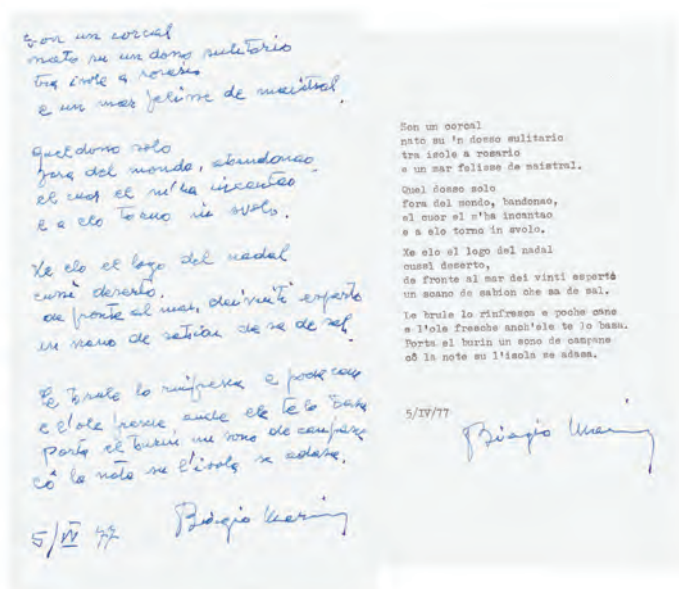 Son un corcal
nato su un doso sulitario
tra isole a rosario
e un mar felisse de maistral.
Quel doso solo
fora del mondo, abandonao,
el cuor el m'ha incantao
e a elo torno in svolo.
Xe elo el logo del nadal
cussì deserto,
de fronte al mar, dei vinti esperto
un scano de sabion che sa de sal.
Le brule lo rinfresca e poche cane
e l'ole fresche anche ele te lo basa
Porta el burin un sono de campane
cô la note su l'isola se adasa.
5/IV 77 Biagio Marin
Son un corcal
nato su 'n dosso sulitario
tra isole a rosario
e un mar felisse de maistral.
Quel dosso solo
fora del mondo, bandonao,
el cuor el m'ha incantao
e a elo torno in svolo.
Xe elo el logo del nadal
cussì deserto,
de fronte al mar dei vinti esperto
un scano de sabion che sa de sal.
Le brule lo rinfresca e poche cane
e l'ole fresche anch'ele te lo basa.
Porta el burin un sono de campane
cô la note su l'isola se adasa.
5/IV/77
Biagio Marin